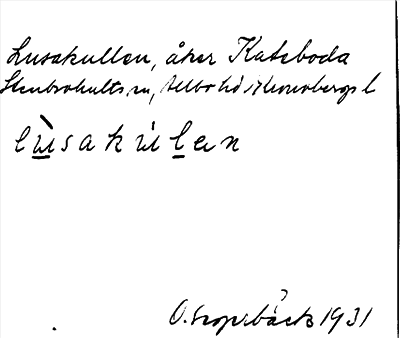 Lusakullen, åker Kateboda
Stenbrohults sn, Allbo hd Kronobergs l
lùsakùlen
O. 1931